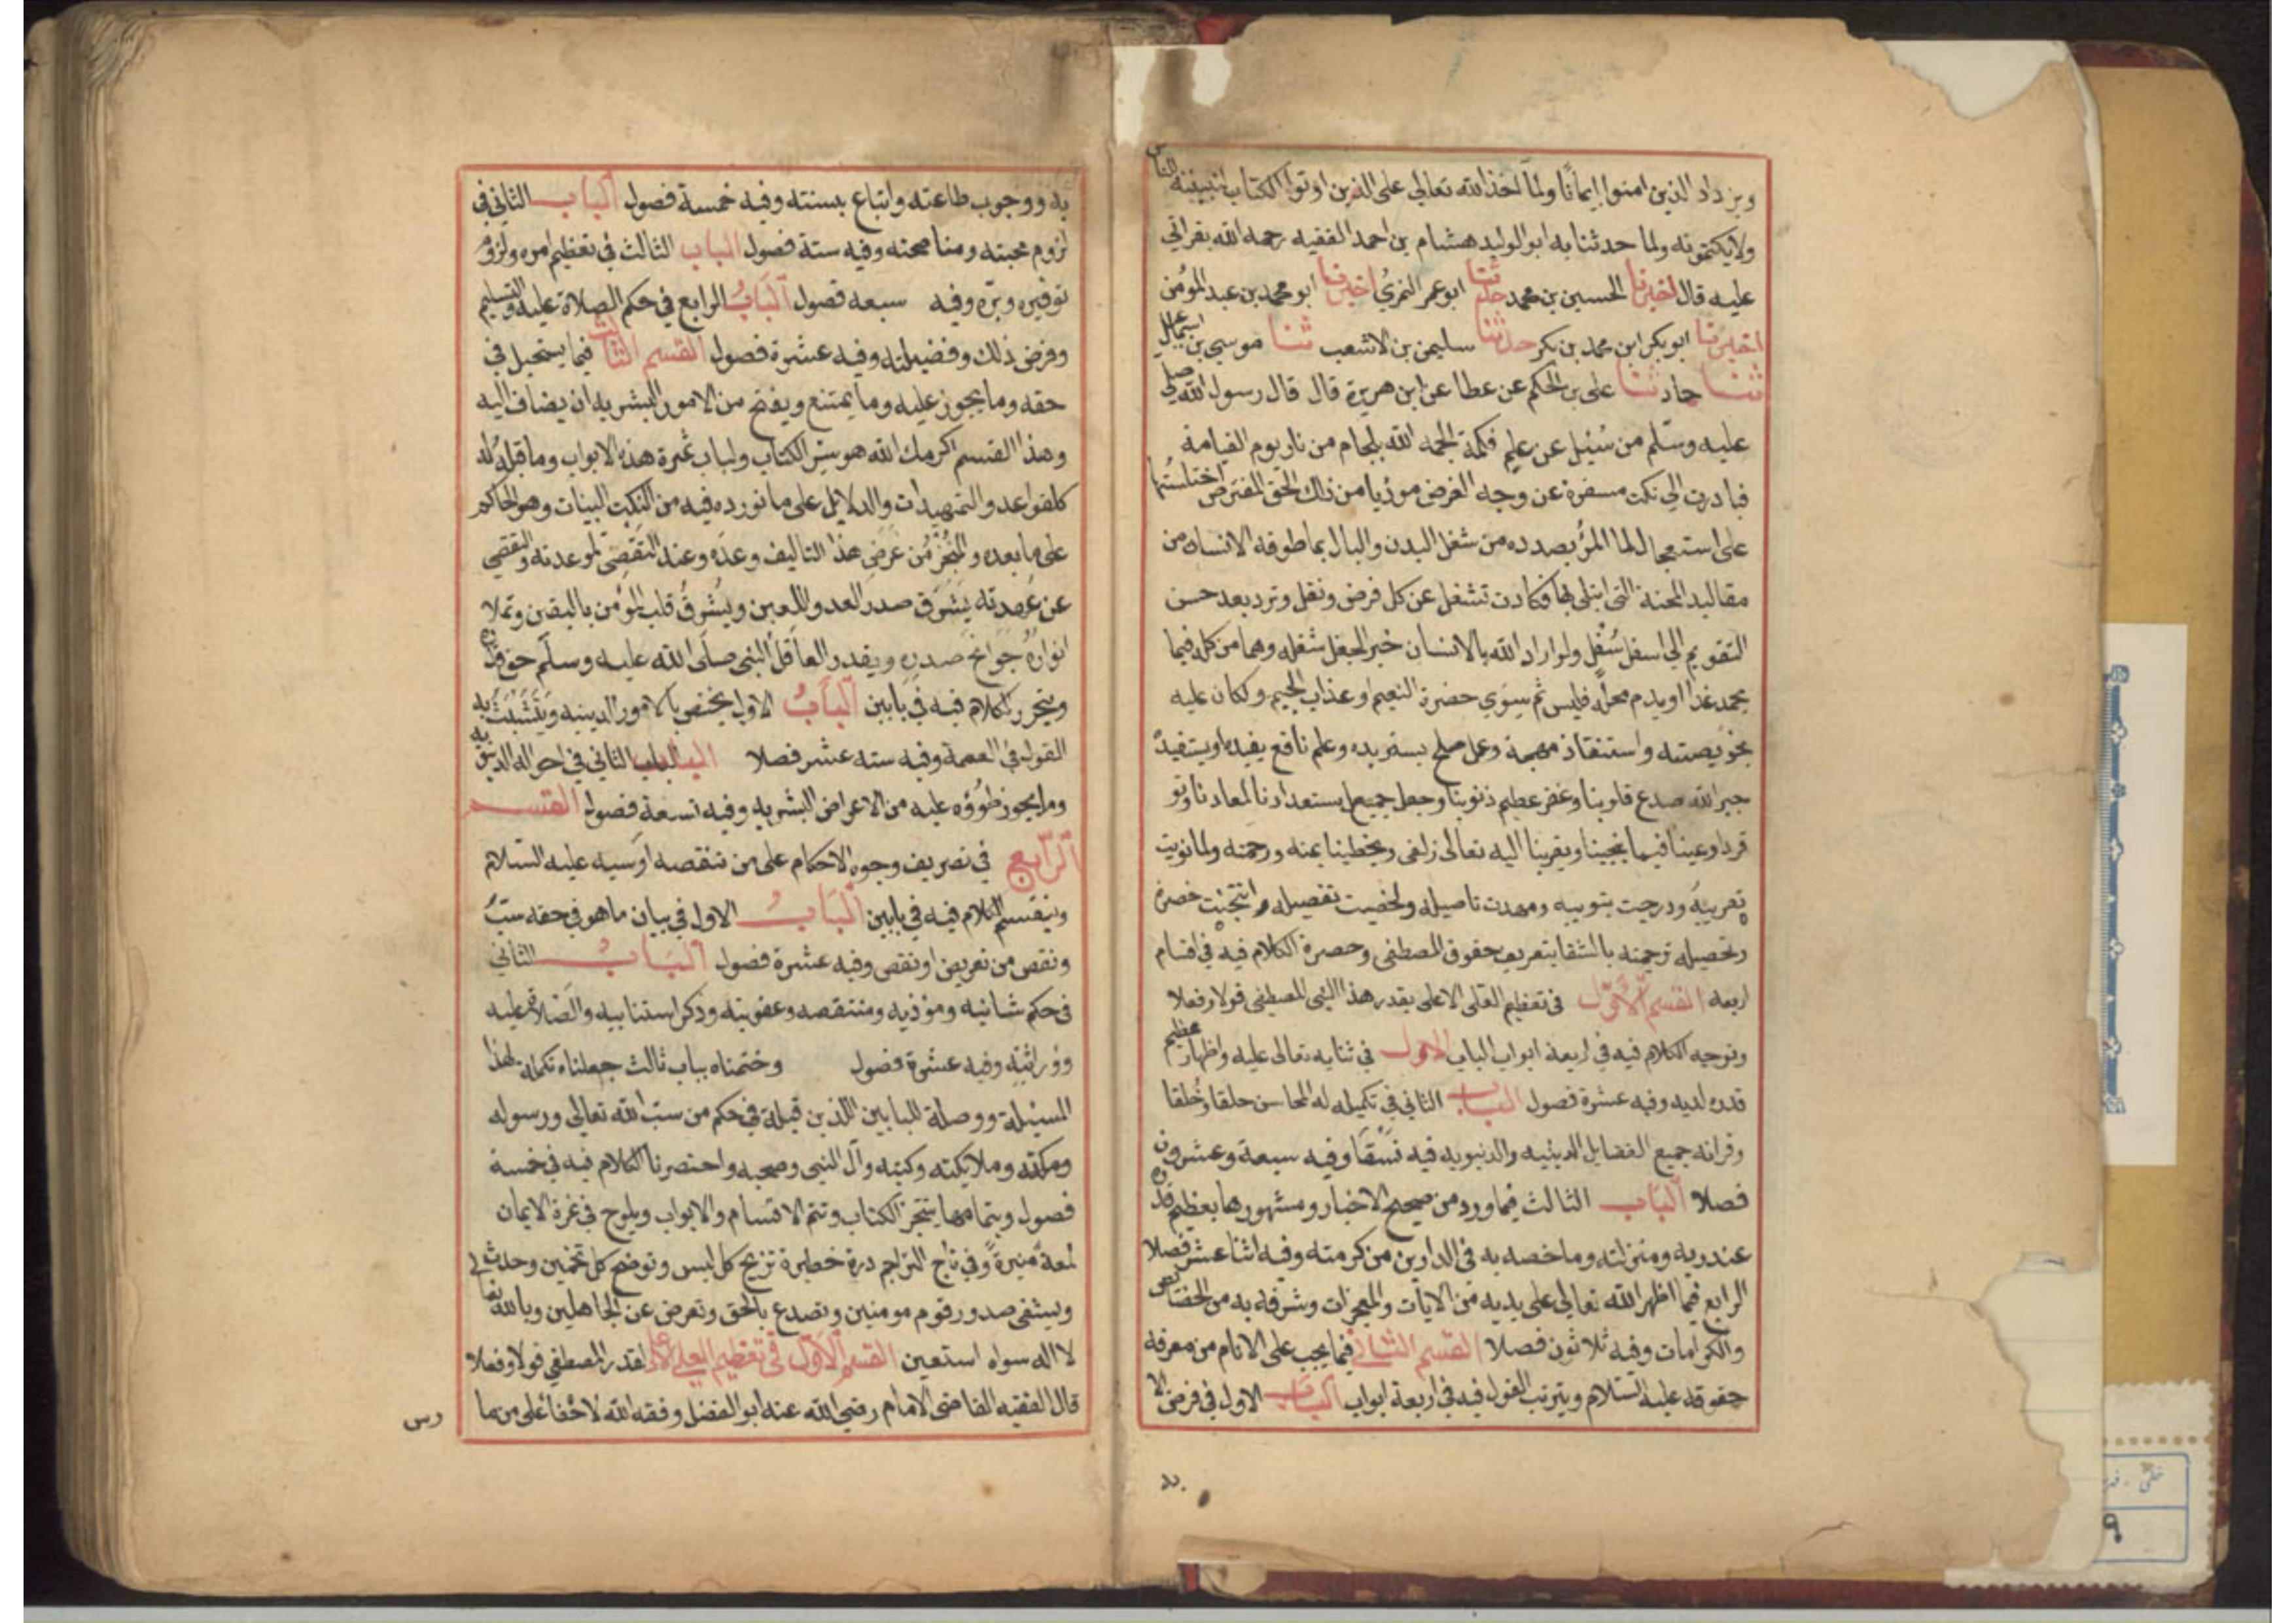 ويزداد الذين امنوا ايمانا ولما اخذ الله تعالي على الذين اوتوا الكتاب لتبيننه للناس
ولا يكتمونه ولما حدثنا به ابو الوليد هشام بن احمد الفقيه رحمه الله بقراتي
عليه قال اخبرنا الحسين بن محمد حدثنا ابو عمر النمري اخبرنا ابو محمد بن عبد المؤمن
اخبرنا ابو بكر ابن محمد بن بكر حدثنا سليمن بن الاشعب ثنا موسي بن اسماعيل
ثنا حماد ثنا على بن الحكم عن عطا عن ابن هريرة قال قال رسول الله صلى
عليه وسلم من سُئيل عن علم فكمة الجمه الله بلجام من نار يوم القيامة
فبادرت الي نكت مسفرة عن وجه الغرض موزيا من ذلك الحق المفترض اختلستها
على استعجال لما المرُ بصدده من شغل البدن والبال بما طوقه الانسان من
مقاليد المحنة التي ابتلي بها فكادت تشغل عن كل فرض ونفل وترد بعد حسن
التقويم الي اسفل سُفْلٍ ولو اراد الله بالانسان خير الجعل شغله وهما من كله فيما
يحمد غدا او يذم محله فليس ثم سوي حضرة النعيم او عذاب الجيم ولكان عليه
بخويصته واستنقاذ مهجة وعمل صلح يستزيده وعلم نافع يفيده او يستفيده
جبر الله صدع قلوبنا وغفر عظيم ذنوبنا وجعل جميع استعدادنا لمعادنا وتو
فردواعينا فيما ينجينا ويقربنا اليه تعالى زلفى ويخطينا بمنه ورحمته ولما نويت
تعريبه ودرجت بتوبيه ومهدت تاصيله ولخصت تفصيله وانتجبت حصره
وتحصيله ترجمته بالشفا بتعريف حقوق المصطفى وحصرة الكلام فيه في اقسام
اربعه القسم الاوّل في تعظيم العلى الاعلى بقدر هذا النبى المصطفى قولا وفعلا
وتوجه الكلام فيه في اربعة ابواب الباب الاول في ثنايه تعالى عليه واظهار عظيم
قدره لديه وفيه عشرة فصول الباب الثاني في تكميله له المحاسن حلقا وخُلقا
وقرانه جميع الفضايل الدينيه والدنيويه فيه نسقًا وفيه سبعة وعشرون
فصلا الباب الثالث فيما ورد من صحيح الاخبار ومشهورها بعظيم قدره
عند ربه ومنزلته وما خصه به في الدارين من كرمته وفيه اثنا عشر فصلا
الرابع فيما اظهر الله تعالي على يديه من الايات والمعجزات وشرفه به من الخصائص
والكرامات وفيه ثلاثون فصلا القسم الثاني فيما يجب على الانام من معرفه
حقوقه عليه السّلام ويترتب القول فيه في اربعة ابواب الباب الاول في فرض الا
به ووجوب طاعته واتباع بسنته وفيه خمسة فصول الباب الثاني في
لزوم محبته ومناصحته وفيه ستة فصول الباب الثالث في تعظيم امره ولزوم
توقيره وبره وفيه سبعه فصول البَابُ الرابع في حكم الصلاة عليه والتسليم
وفرض ذلك وفضيلته وفيه عشرة فصول القسم الثالث فيما يستحيل في
حقه وما يجوز عليه وما يمتنع ويفتح من الامور البشريه ان يضاف اليه
وهذا القسم اكرمك الله هو سرّ الكتاب ولباب ثمرة هذه الابواب وما قبله له
كلقواعد والتمهيدات والدلايل على ما نورده فيه من النكت البينات وهو الحاكم
على ما بعده والمنجز من غرض هذا التاليف وعده وعند التقصّى لموعدته والتقصي
عن عُهدته يَشرَق صدر العدو واللعين ويُشرقُ قلب المؤمن باليقين وتملا
انواره جَوَانح صدره ويقدر العاقل النبى صلى الله عليه وسلّم حق قدره
ويتحرر الكلام فيه في بابين البابُ الاول يختص بالامور الدينيه ويتشبث به
القول في العصمة وفيه سته عشر فصلا الباب الباب الثاني في احواله الدنيويه
وما يجوز طروؤه عليه من الاعراض البشريه وفيه تسعة فصول القسم
الرّابع في تصريف وجوه الاحكام على من تنقصه او سبه عليه السّلام
وينقسم الكلام فيه في بابين البَابُ الاول في بيان ما هو في حقه سبّ
ونقص من تعريض او نقص وفيه عشرة فصول البَابُ الثاني
في حكم شانيه ومؤذيه ومنتقصه وعقوبته وذكر استتابيه والصّلاة عليه
وَوُراثتِه وفيه عشرة فصول وختمناه بباب ثالث جعلناه تكملة لهذا
المسئلة ووصلة للبابين اللذين قبلة في حكم من سبّ الله تعالي ورسوله
وملائكته وكتبه وآل النبي وصحبه واحتصرنا الكلام فيه في خمسة
فصول وبتمامها ينتجز الكتاب وتتم الاقسام والابواب ويلوح في غرة الايمان
لمعةٌ منيرةٌ وفي تاج التراجم درة خطيرة تزيح كل لبس وتوضح كل تخمين وحدث
ويشفي صدور قوم مومنين وتصدع بالحق وتعرض عن الجاهلين وبالله تعالى
لا اله سواه استعين القسم الاول في تعظيم العلى الاعلى لقدر المصطفي قولا وفعلا
قال الفقيه القاضى الامام رضي الله عنه ابو الفضل وفقه الله لا خفا على من ما
رس